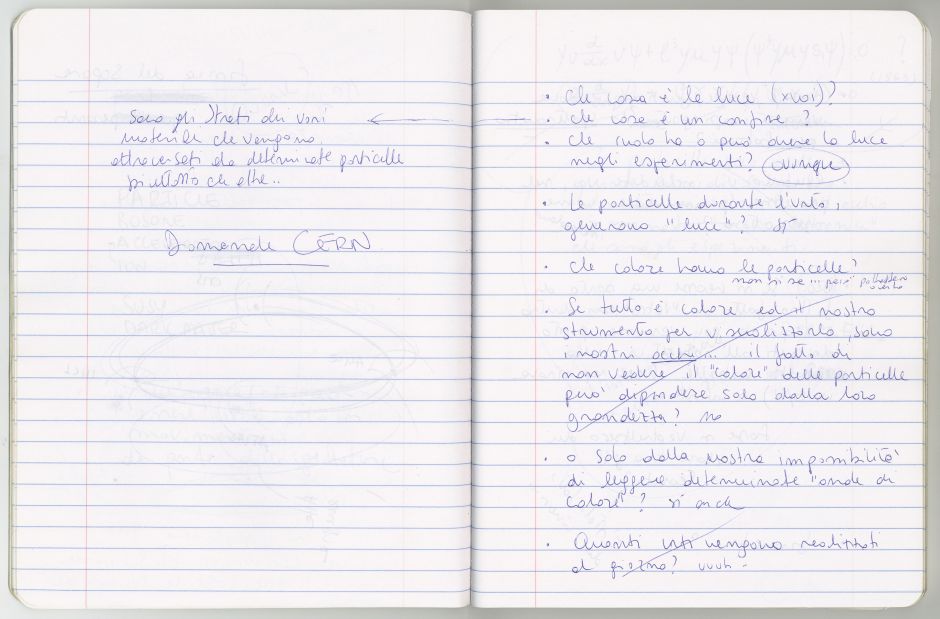 Sono gli strati dei vari
materiale che vengono
attraversati da determinate particelle
piuttosto che altre..
Domande CERN
• Che cosa è la luce (x voi)?
• che cosa è un confine?
• che ruolo ha o può avere la luce
negli esperimenti? ovunque
• le particelle durante l'urto,
generano "luce"? sì
• che colore hanno le particelle?
non si sa ... però potrebbero
averlo
• Se tutto è colore ed il nostro
strumento per visualizzarlo, sono
i nostri occhi... il fatto di
non vedere il "colore" delle particelle
può dipendere solo dalla loro
grandezza? no
• o solo dalla nostra impossibilità
di leggere determinate "onde di
colore"? sì anche
• Quanti urti vengono realizzati
al giorno?